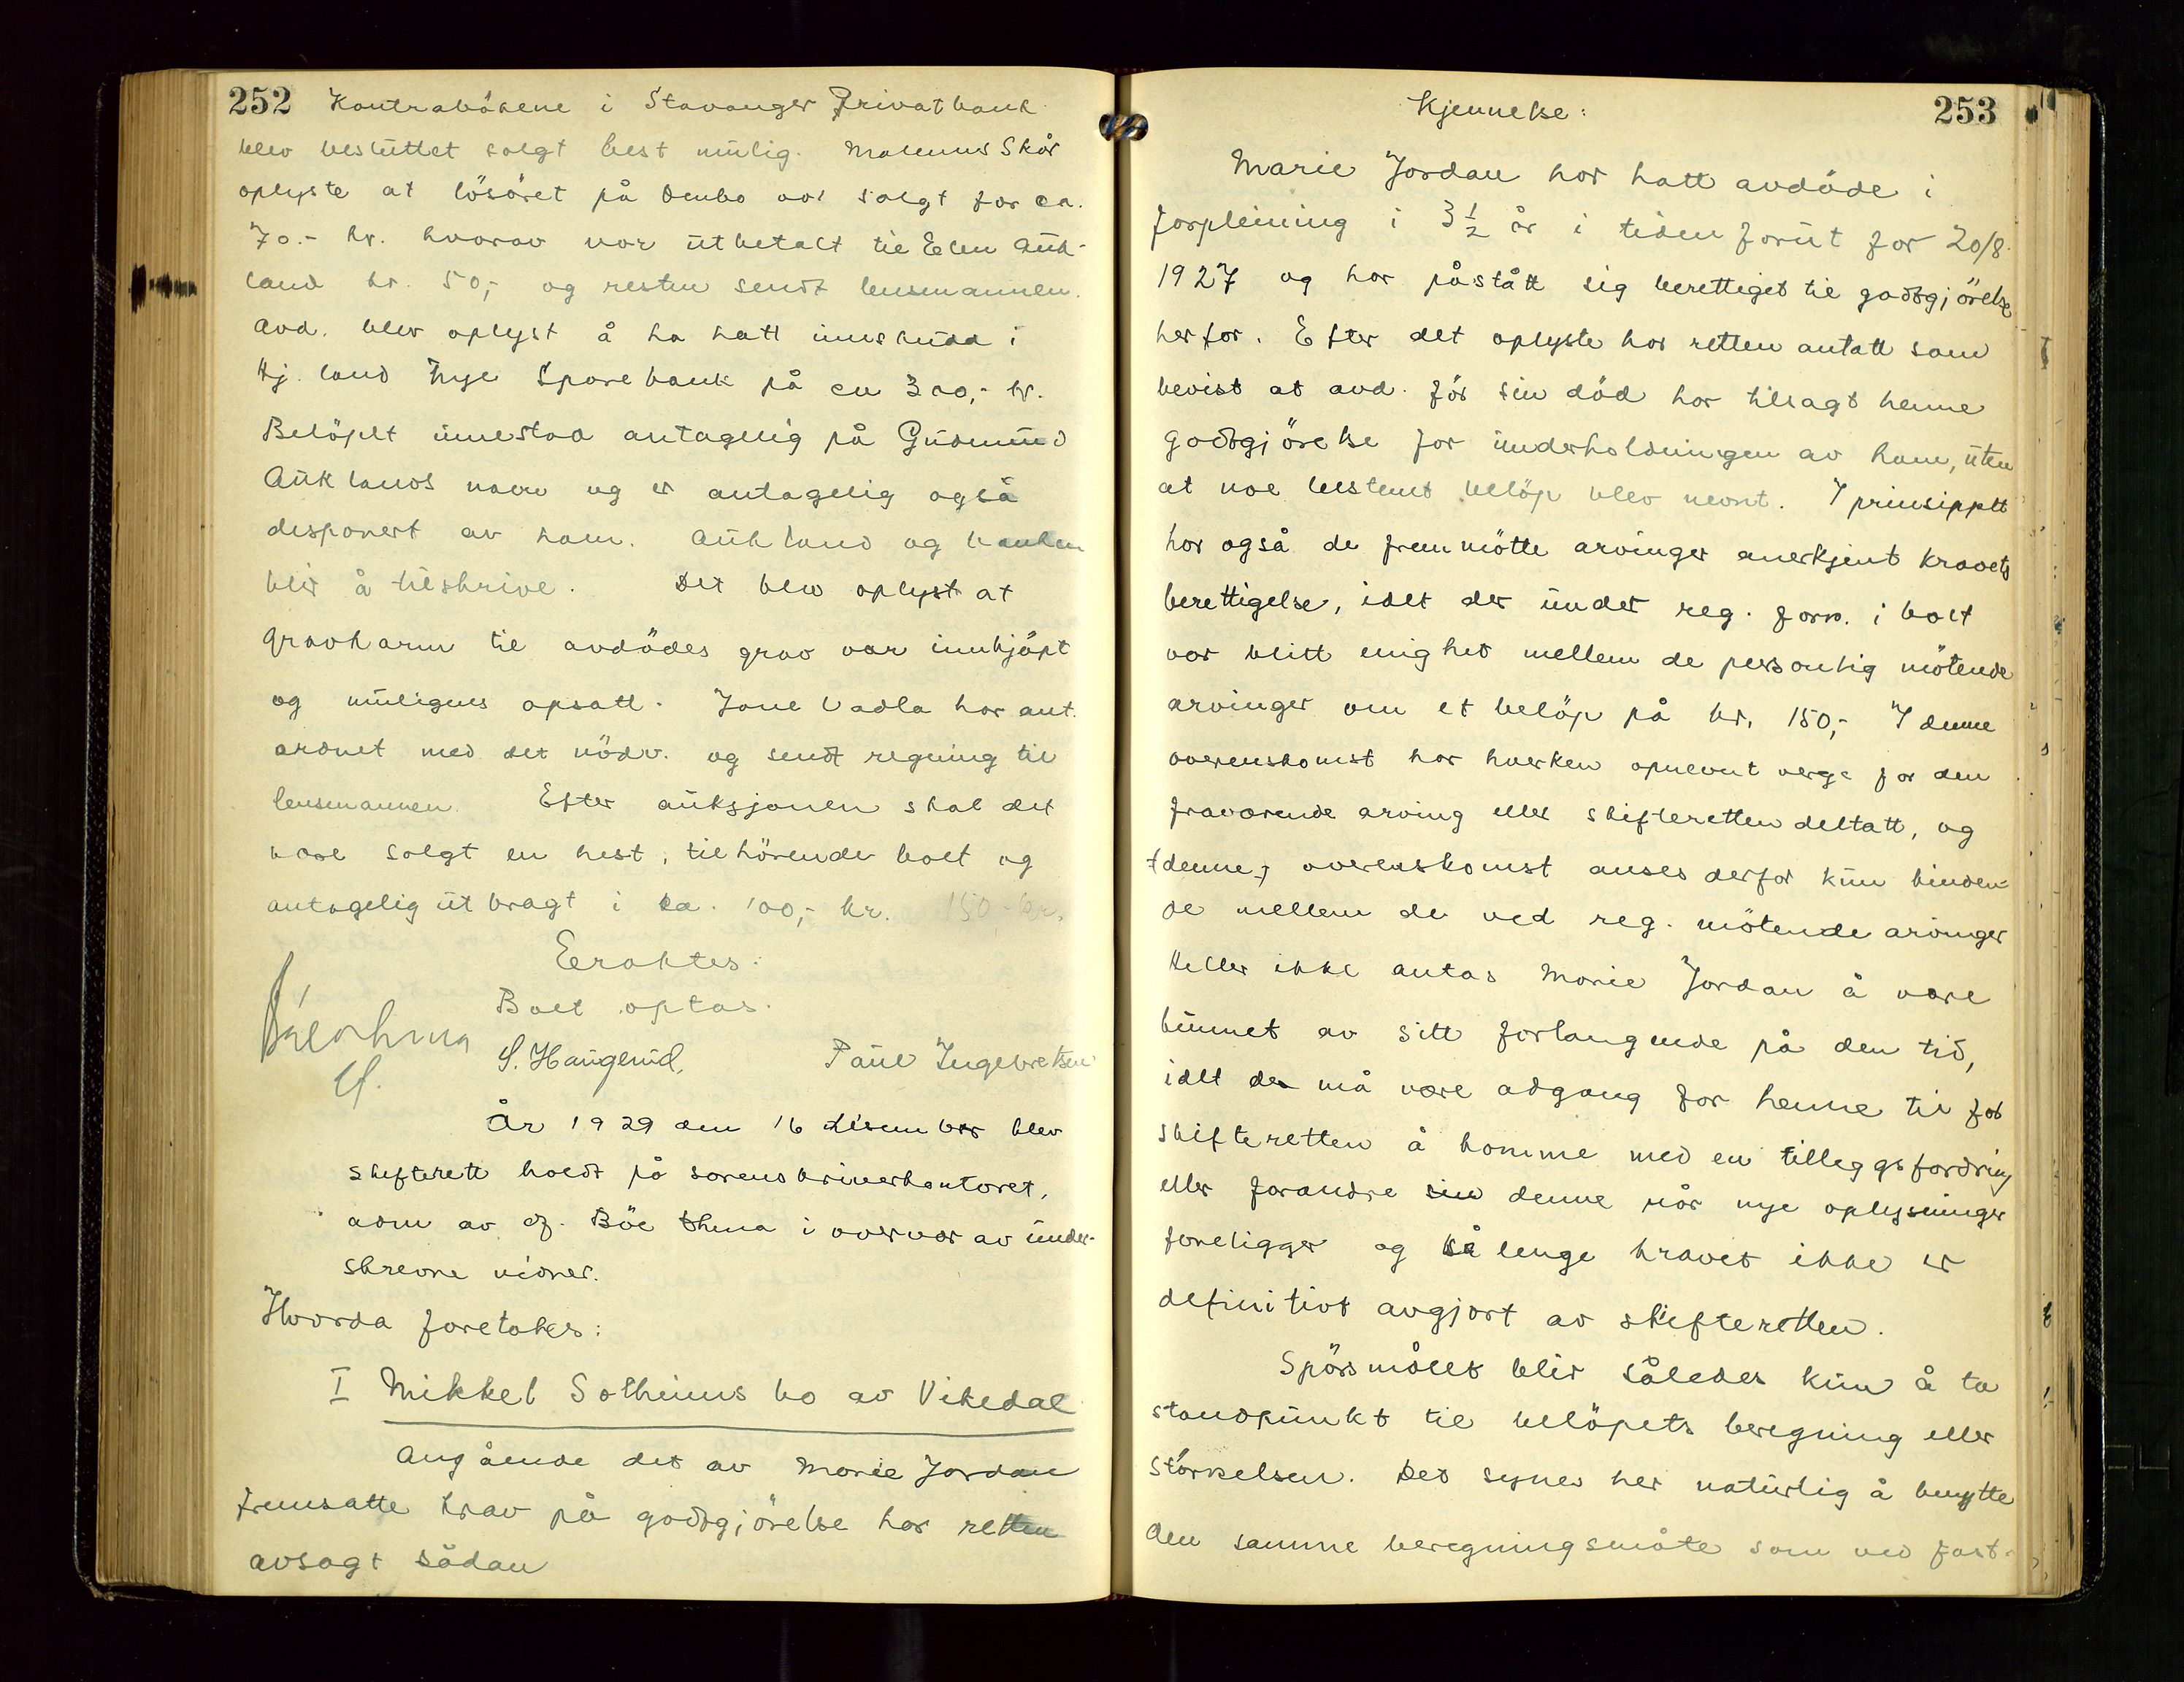 252 Kontrabökene i Stavanger Privatbank
blev besluttet solgt best mulig. Malenus Skår
oplyste at lösöret på Ombo var solgt for ca.
70.- kr. hvorav var utbetalt til Elen Auk-
land kr. 50,- og resten sendt lensmannen.
Avd. blev oplyst å ha hatt innskudd i
Hj. land nye Sparebank på ca 300,- kr.
Belöpet innestod antagelig på Gudmund
Auklands navn og er antagelig også
disponert av ham. Aukland og banken
blir å tilskrive. Det blev oplyst at
gravkarm til avdödes grav var innkjöpt
og muligens opsatt. Jone Vadla har ant.
ordnet med det nödv. og sendt regning til
lensmannen. Efter auksjonen skal det
være solgt en hest, tilhörende boet og
antagelig utbragt i ca. 100,- kr. 150,- kr.
Eraktes:
Boet optas.
S. Haugerud, Paul Ingebretsen
År 1929 den 16 desember blev
skifterett holdt på sorenskriverkontoret,
adm av cf. Böe Ohma i overvær av under-
skrevne vidner.
Hvorda foretokes:
I Mikkel Solheims bo av Vikedal
Angående det av Marie Jordan
fremsatte krav på godtgjörelse har retten
avsagt sådan
Kjennelse: 253
Marie Jordan har hatt avdöde i
forpleining i 3 1/2 år i tiden forut for 20/8.
1927 og har påstått sig berettiget til godtgjörelse
herfor. Efter det oplyste har retten antatt som
bevist at avd. för sin död har tilsagt henne
godtgjörelse for underholdningen av ham, uten
at noe bestemt belöp blev nevnt. I prinsippet
har også de fremmötte arvinger anerkjent kravets
berettigelse, idet der under reg. forr. i boet
var blitt enighet mellem de personlig mötende
arvinger om et belöp på kr. 150,- I denne
overenskomst har hverken opnevnt verge for den
fraværende arving eller skifteretten deltatt, og
denne overenskomst anses derfor kun binden-
de mellem de ved reg. mötende arvinger
Heller ikke antas Marie Jordan å være
bunnet av sitt forlangende på den tid,
idet der må være adgang for henne til for
skifteretten å komme med en tilleggsfordring
eller forandre sin denne når nye oplysninger
foreligger og så lenge kravet ikke er
definitivt avgjort av skifteretten.
Spörsmålet blir således kun å ta
standpunkt til belöpets beregning eller
störrelsen. Det synes her naturlig å benytte
den samme beregningsmåte som ved fast-